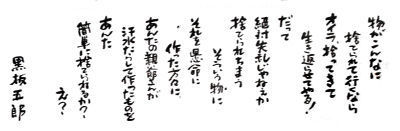 物がこんなに
捨てられて行くなら
オイラ、拾ってきて
生き返らせてやる!
だって
紐付失礼じゃねえか
捨てられちまう
そういう物に
それを懸命に
作った方々に。
あんたの親爺さんが
汗水たらして作ったものを
あんた
簡単に捨てられるか?
え?
黒板五郎